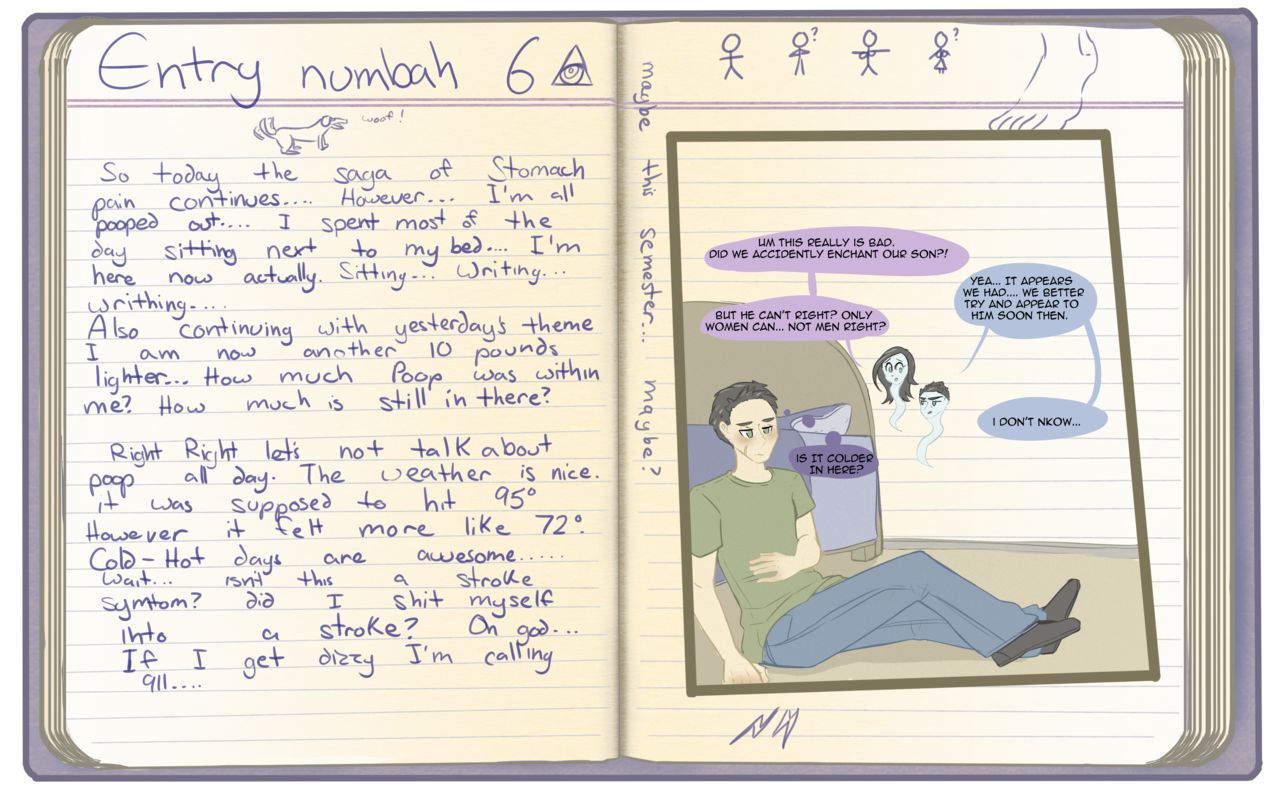 Entry numbah 6
woof!
So today the saga of Stomach
pain continues.... However... I'm all
pooped out.... I spent most of the
day sitting next to my bed.... I'm
here now actually. Sitting... Writing...
writhing....
Also continuing with yesterday's theme
I am now another 10 pounds
lighter... How much Poop was within
me? How much is still in there?
Right Right let's not talk about
poop all day. The weather is nice.
it was supposed to hit 95°
However it felt more like 72°.
Cold-Hot days are awesome.....
Wait... isn't this a stroke
symtom? did I shit myself
into a stroke? Oh god...
If I get dizzy I'm calling
911....
maybe this semester... maybe?
? ?
UM THIS REALLY IS BAD.
DID WE ACCIDENTLY ENCHANT OUR SON?!
YEA... IT APPEARS
WE HAD.... WE BETTER
TRY AND APPEAR TO
HIM SOON THEN.
BUT HE CAN'T RIGHT? ONLY
WOMEN CAN... NOT MEN RIGHT?
I DON'T NKOW...
IS IT COLDER
IN HERE?